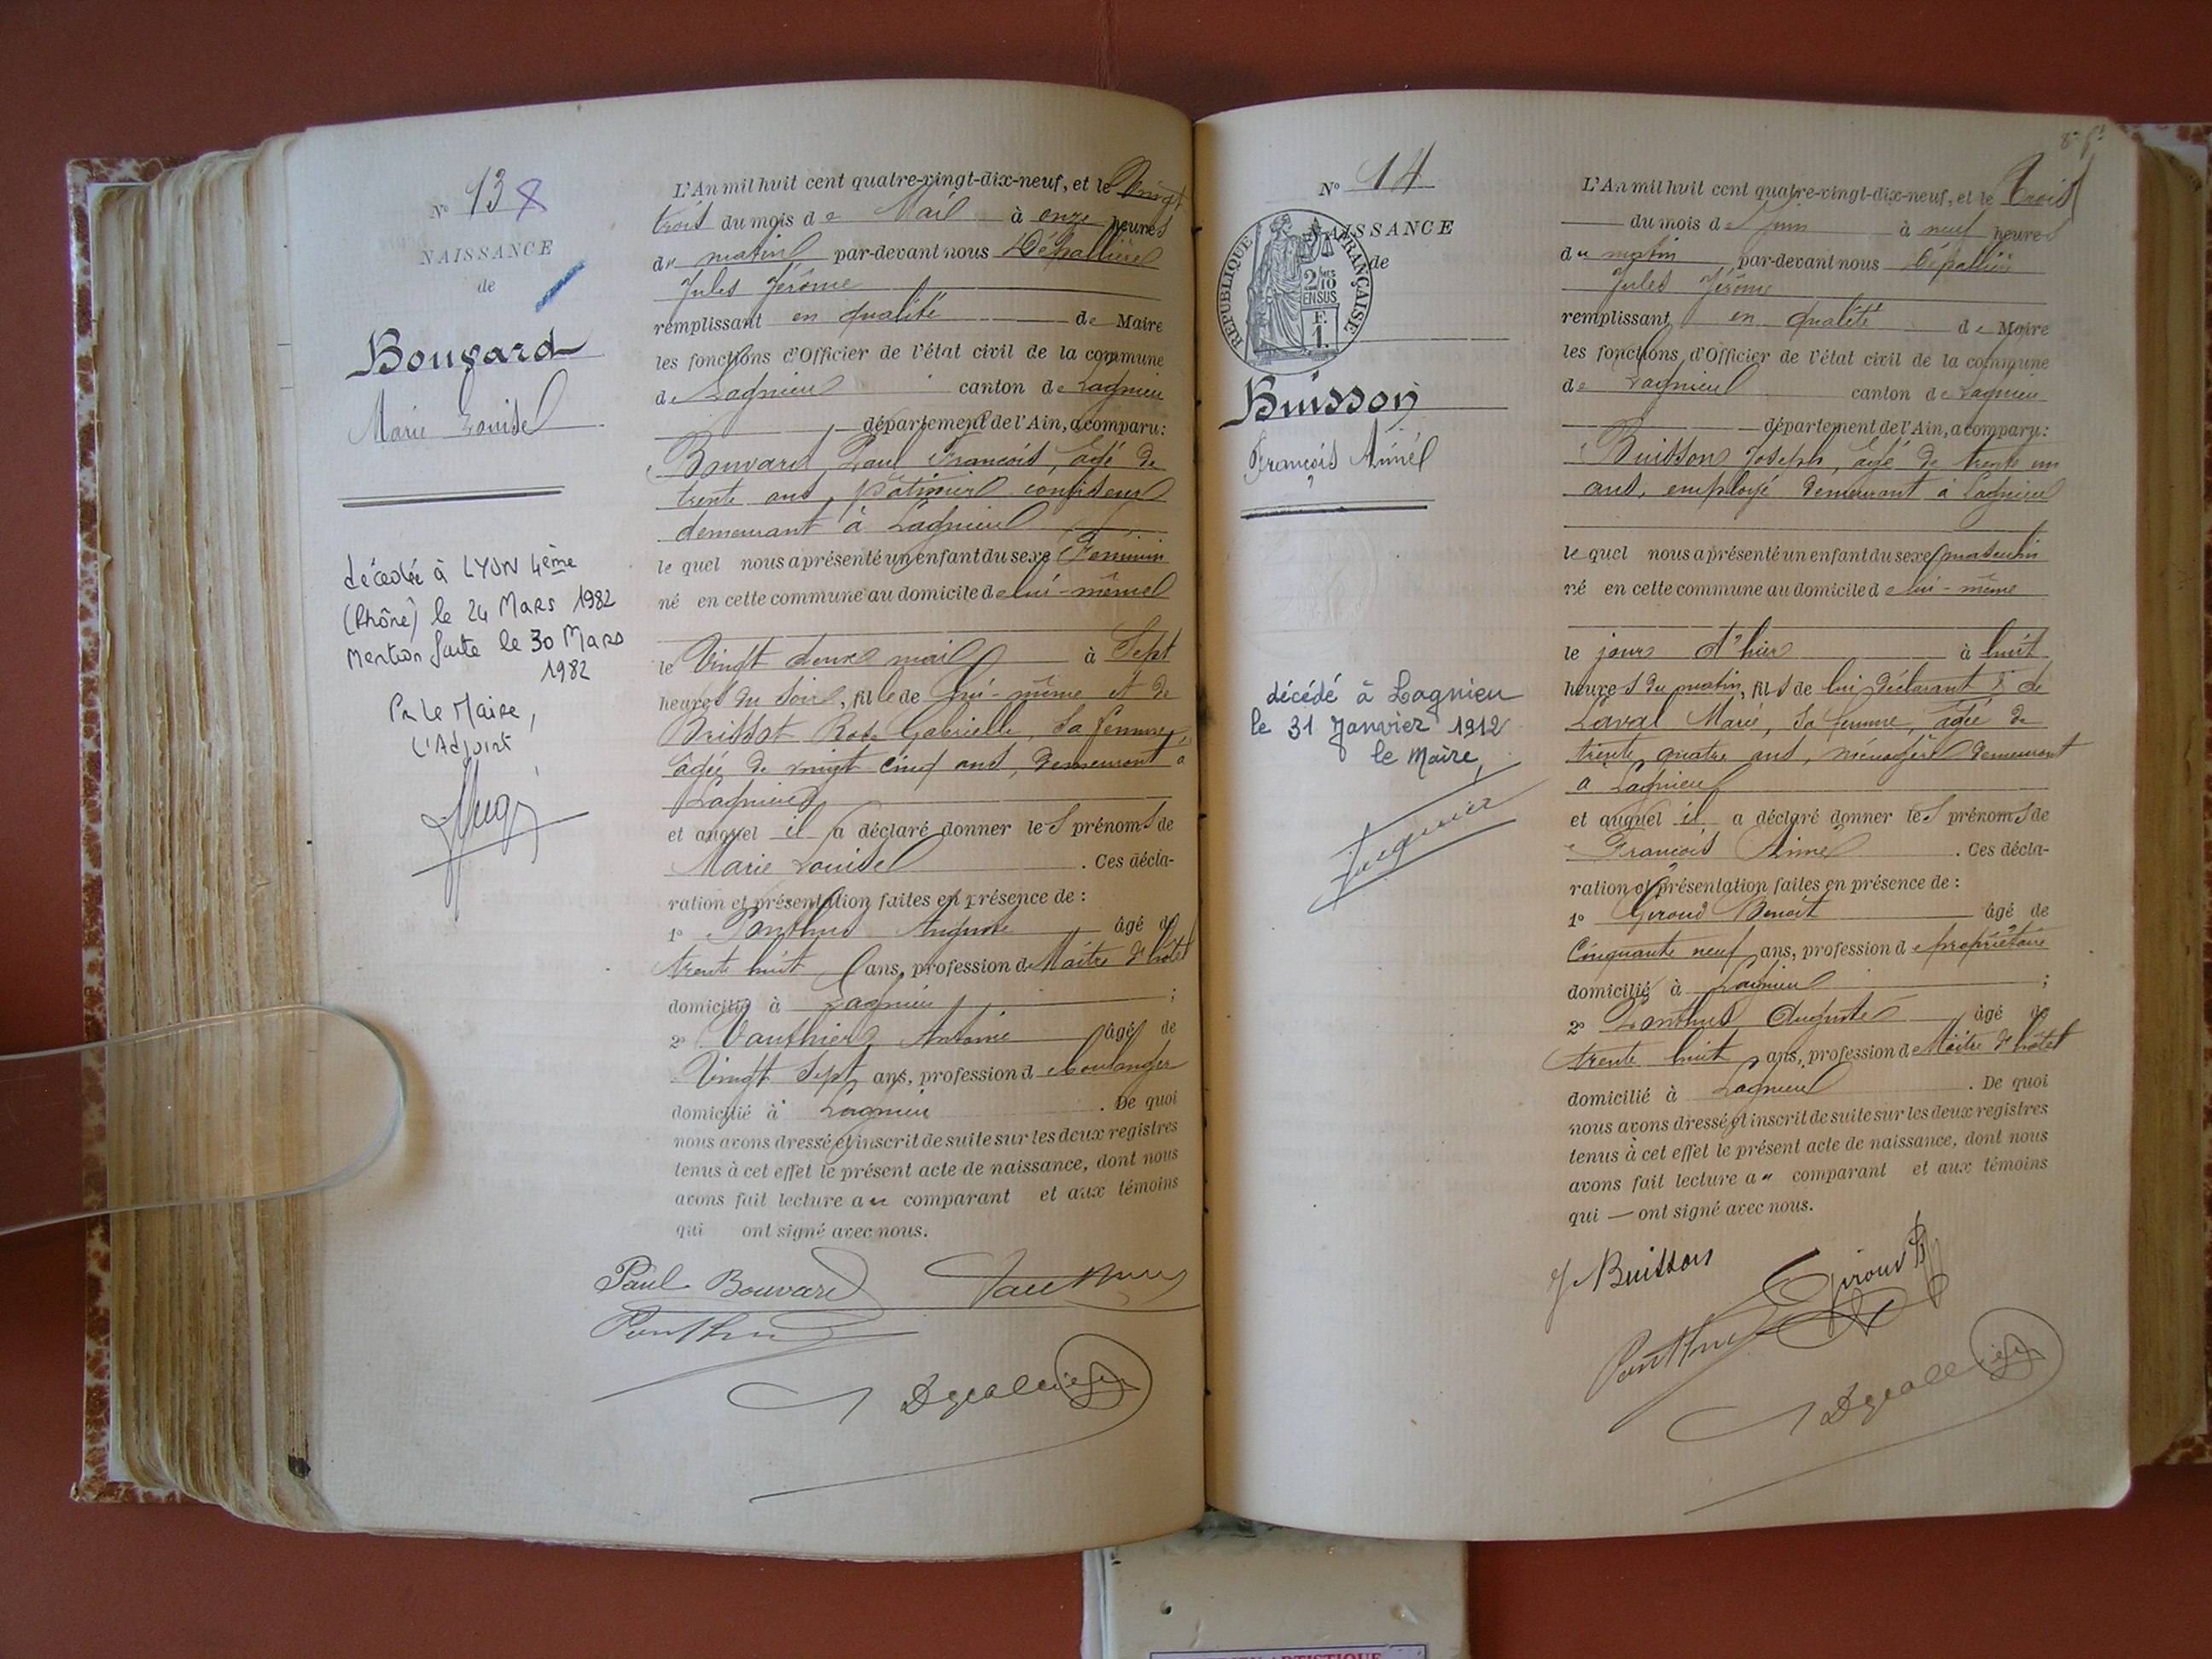 Nº 13
NAISSANCE
de
Bouvard
Marie Louise
décédée à LYON 4ème
(Rhône) le 24 Mars 1982
Mention faite le 30 Mars
1982
Pr Le Maire,
L'Adjoint
L'An mil huit cent quatre-vingt-dix-neuf, et le Vingt
trois du mois de Mai à onze heures
du matin par-devant nous Dépallière
Jules Jérôme
remplissant en qualité de Maire
les fonctions d'Officier de l'état civil de la commune
de Lagnieu canton de Lagnieu
département de l'Ain, a comparu:
Bouvard Paul François, âgé de
trente ans, pâtissier confiseur
demeurant à Lagnieu
le quel nous a présenté un enfant du sexe Féminin
né en cette commune au domicile de lui-même
le Vingt deux mai à Sept
heures du soir, fille de lui-même et de
Brissot Rose Gabrielle, sa femme,
âgée de vingt cinq ans, demeurant à
Lagnieu
et auquel il a déclaré donner les prénoms de
Marie Louise . Ces décla-
ration et présentation faites en présence de :
1º Ponthus Auguste âgé de
trente huit ans, profession de Maître d'hôtel
domicilié à Lagnieu ;
2º Vauthier Antoine âgé de
Vingt Sept ans, profession de boulanger
domicilié à Lagnieu . De quoi
nous avons dressé et inscrit de suite sur les deux registres
tenus à cet effet le présent acte de naissance, dont nous
avons fait lecture au comparant et aux témoins
qui ont signé avec nous.
Paul Bouvard Vauthier
Ponthus
Nº 14
NAISSANCE
de
RÉPUBLIQUE FRANÇAISE
2/10
EN SUS
F.
1.
Buisson
François Aimé
décédé à Lagnieu
le 31 Janvier 1912
le Maire,
L'An mil huit cent quatre-vingt-dix-neuf, et le Trois
du mois de Juin à neuf heures
du matin par-devant nous Dépallière
Jules Jérôme
remplissant en qualité de Maire
les fonctions d'Officier de l'état civil de la commune
de Lagnieu canton de Lagnieu
département de l'Ain, a comparu:
Buisson Joseph, âgé de trente un
ans, employé demeurant à Lagnieu
le quel nous a présenté un enfant du sexe masculin
né en cette commune au domicile de lui-même
le jour d'hier à huit
heures du matin, fils de lui déclarant & de
Laval Marie, sa femme, âgée de
trente quatre ans, ménagère demeurant
à Lagnieu
et auquel il a déclaré donner les prénoms de
François Aimé . Ces décla-
ration et présentation faites en présence de :
1º Giroud Benoit âgé de
Cinquante neuf ans, profession de propriétaire
domicilié à Lagnieu ;
2º Ponthus Auguste âgé de
trente huit ans, profession de Maître d'hôtel
domicilié à Lagnieu . De quoi
nous avons dressé et inscrit de suite sur les deux registres
tenus à cet effet le présent acte de naissance, dont nous
avons fait lecture au comparant et aux témoins
qui — ont signé avec nous.
J. Buisson Giroud B
Ponthus
ARTISTIQUE